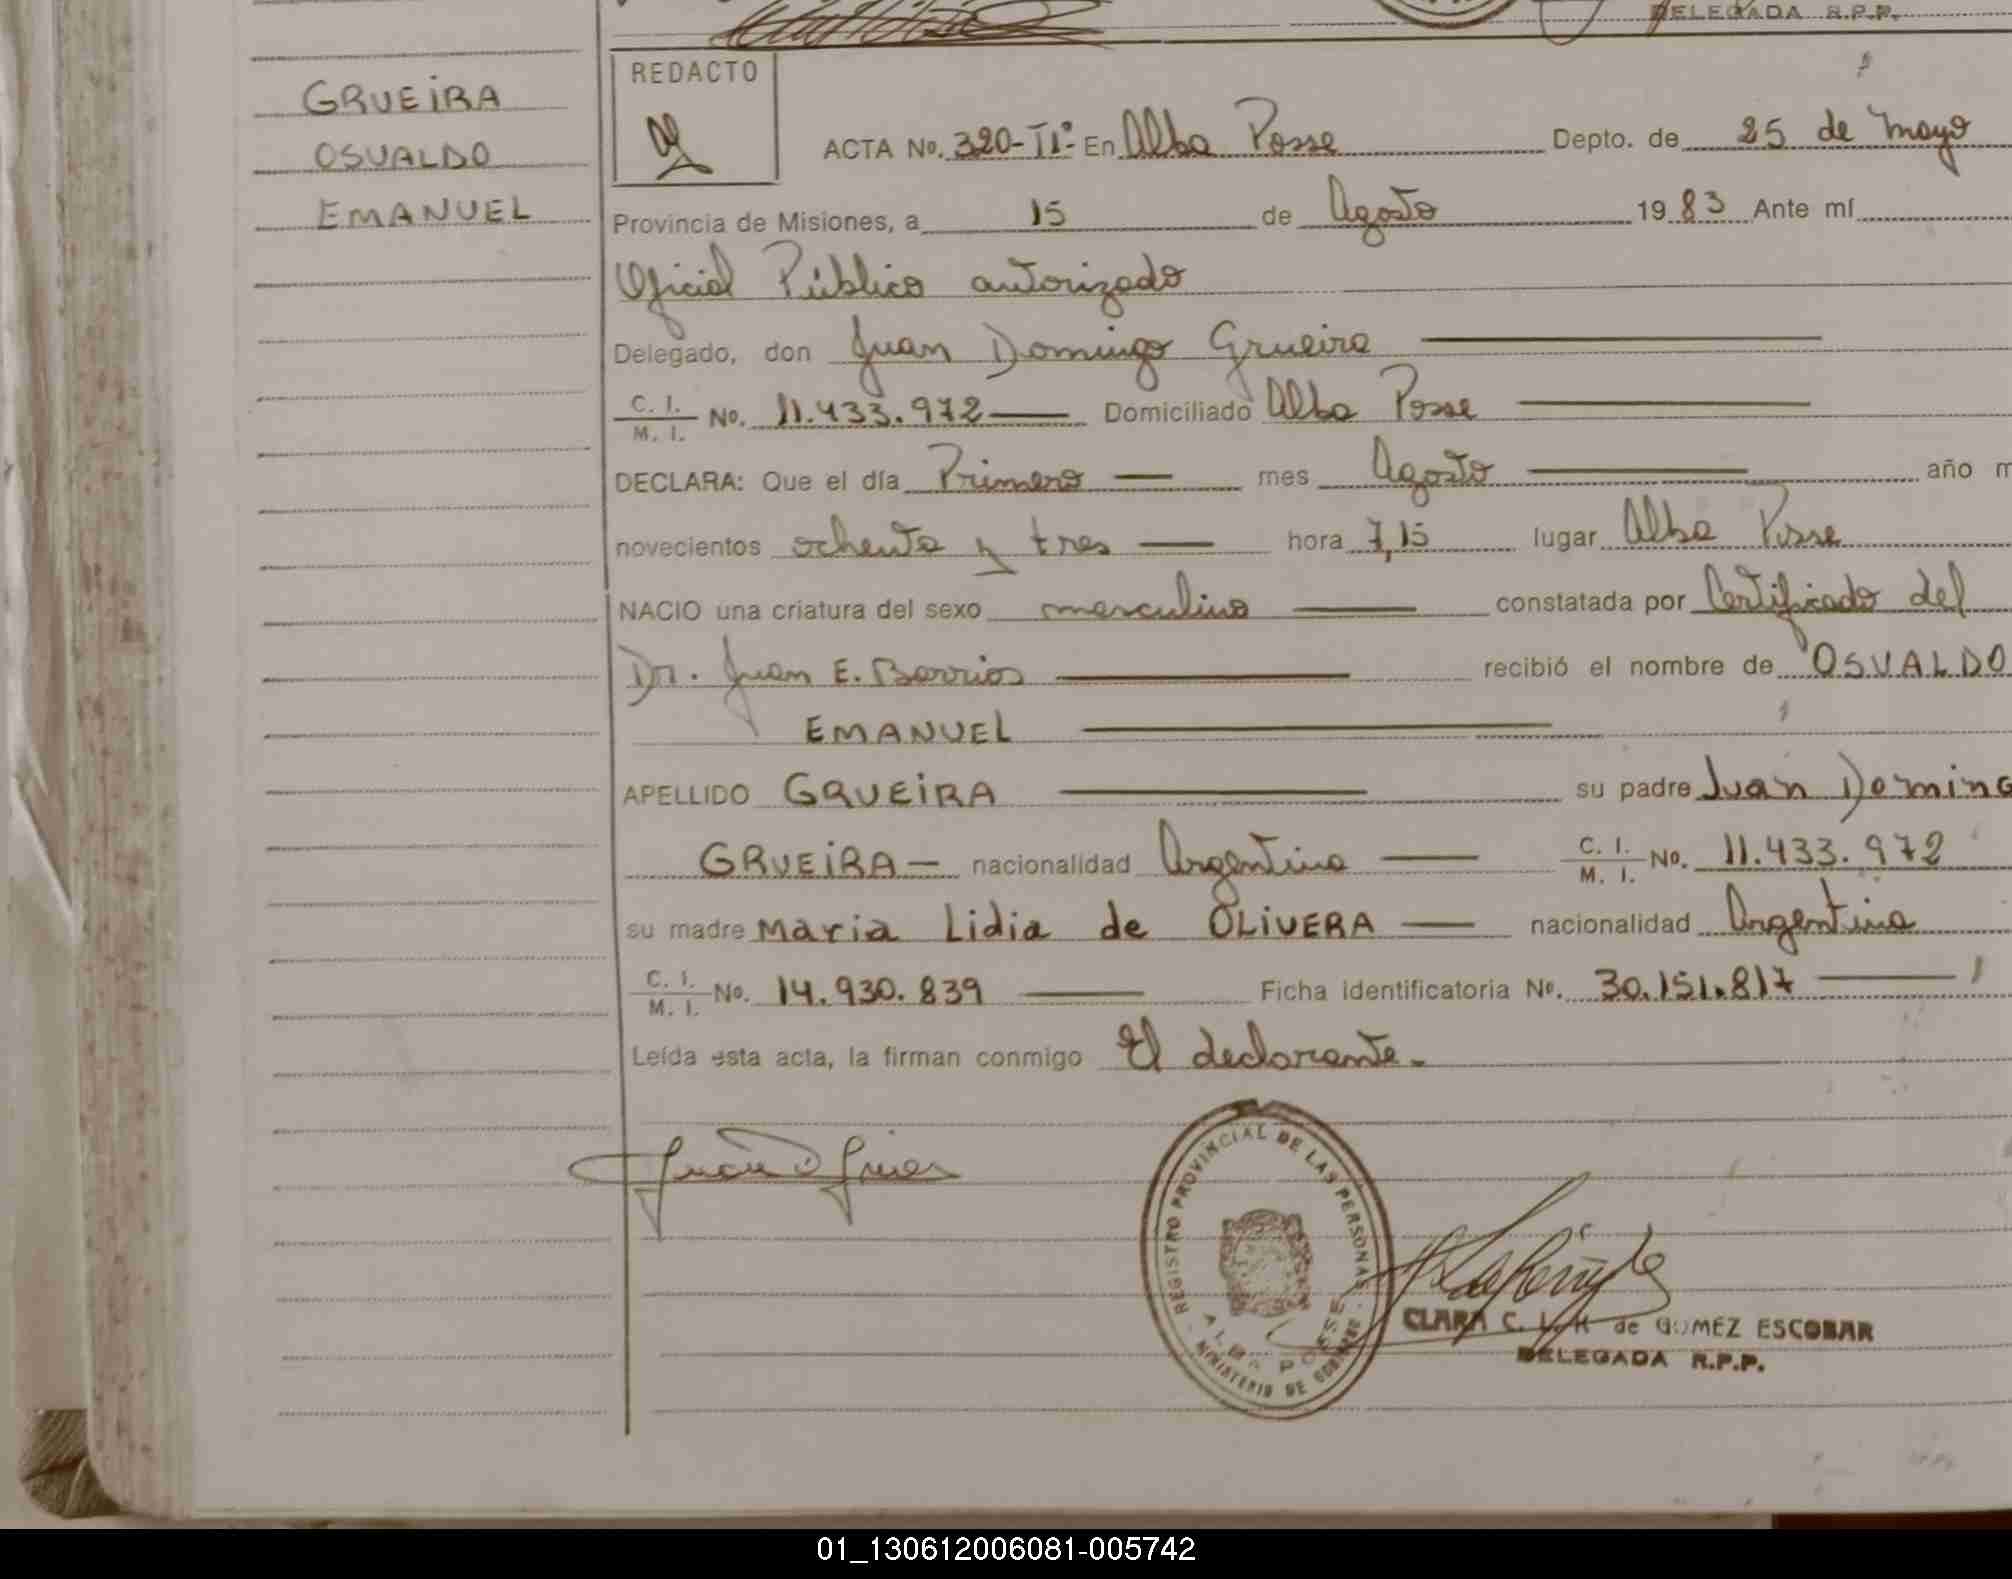 DELEGADA R.P.P.
GRUEIRA
OSVALDO
EMANUEL
REDACTO
ACTA No. 320-TIº- En Alba Posse Depto. de 25 de Mayo
Provincia de Misiones, a 15 de Agosto 19 83 Ante mí
Oficial Público autorizado
Delegado, don Juan Domingo Grueira
C. I.
M. I. No. 11.433.972 Domiciliado Alba Posse
DECLARA: Que el día Primero mes Agosto año m
novecientos ochenta y tres hora 7,15 lugar Alba Posse
NACIO una criatura del sexo masculino constatada por Certificado del
Dr. Juan E. Barrios recibió el nombre de OSVALDO
EMANUEL
APELLIDO GRUEIRA su padre Juan Doming
GRUEIRA nacionalidad Argentina C. I.
M. I. No. 11.433.972
su madre Maria Lidia de OLIVERA nacionalidad Argentina
C. I.
M. I. No. 14.930.839 Ficha identificatoria No. 30.151.817
Leída esta acta, la firman conmigo El declarante.
REGISTRO PROVINCIAL DE LAS PERSONAS
ALBA POSSE
MINISTERIO DE GOBIERNO
CLARA C. L. K de GOMEZ ESCOBAR
DELEGADA R.P.P.
01_130612006081-005742